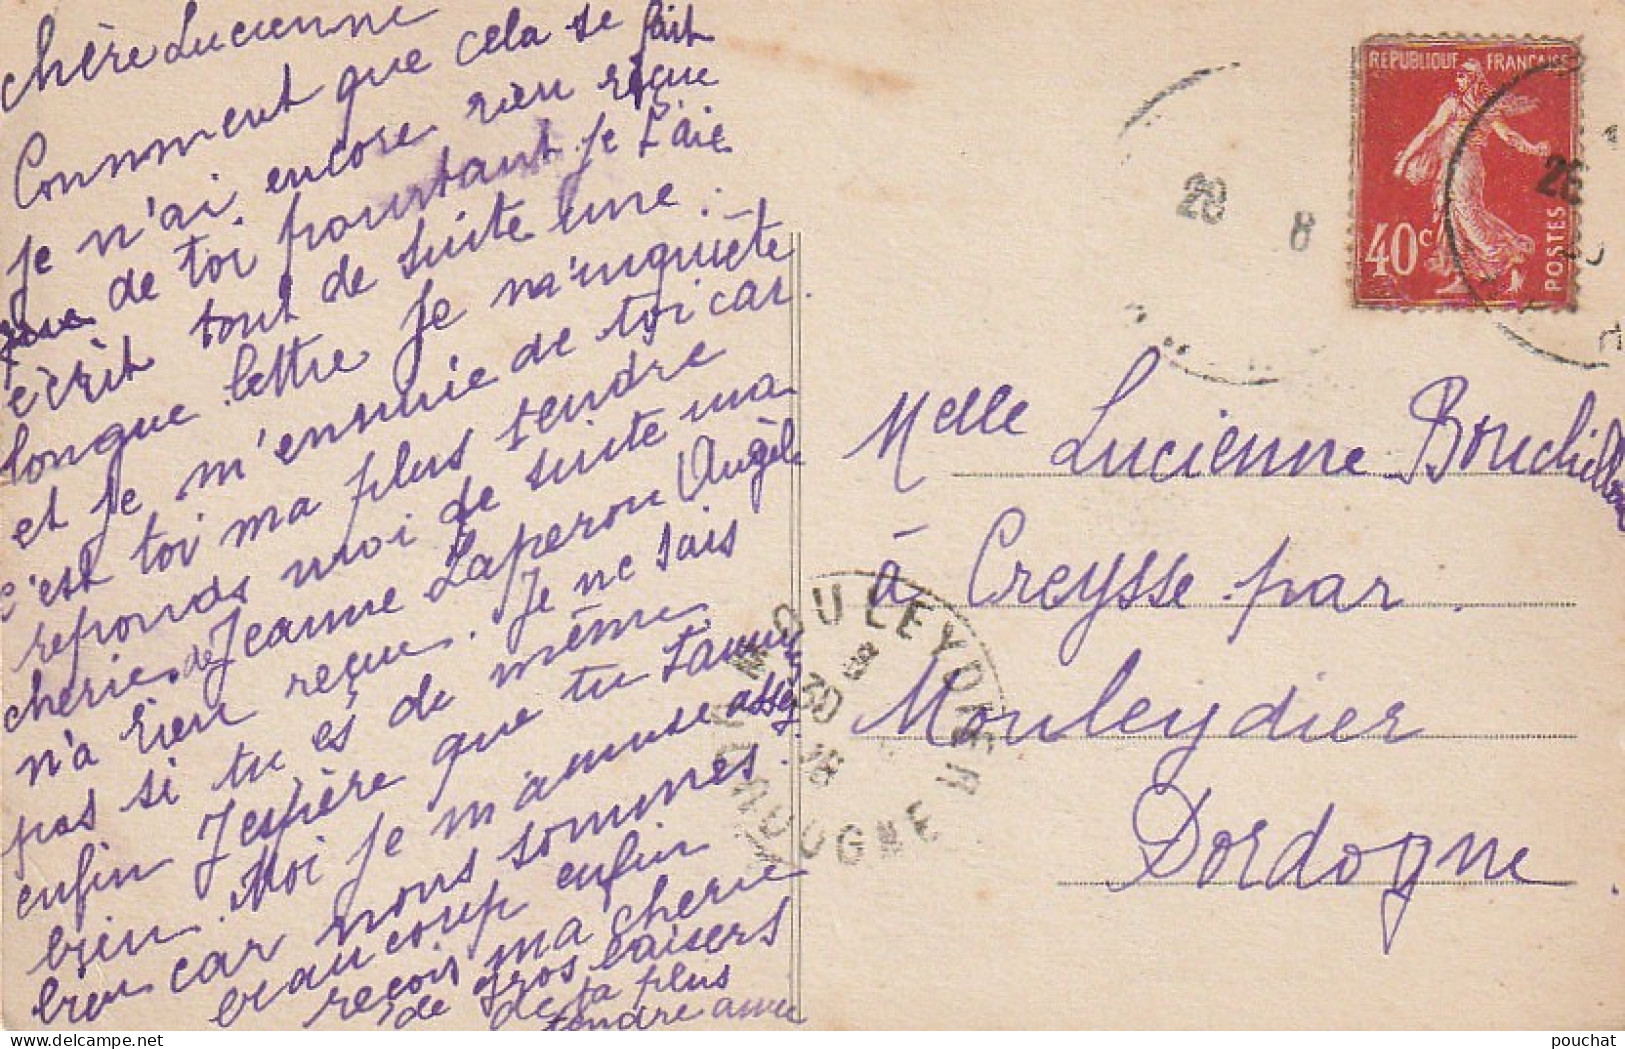 chère Lucienne
Comment que cela se fait
je n'ai encore rien reçue
que de toi pourtant je t'aie
écrit tout de suite une
longue lettre je m'inquiète
et je m'ennuie de toi car
c'est toi ma plus tendre
reponds moi de suite ma
cherie. de Jeanne Laperou Angèle
n'a rien reçue. Je ne sais
pas si tu es de même
enfin J'espère que tu t'amuse
bien. Moi je m'amuse assez
bien car nous sommes
beaucoup enfin
reçois ma cherie
de gros baisers
de ta plus
tendre amie
REPUBLIQUE FRANÇAISE
40c
POSTES
28
8
26
Melle Lucienne Bouchillou
à Creysse par
Mouleydier
Dordogne
MOULEYDIER
8
30
DORDOGNE
pouchat